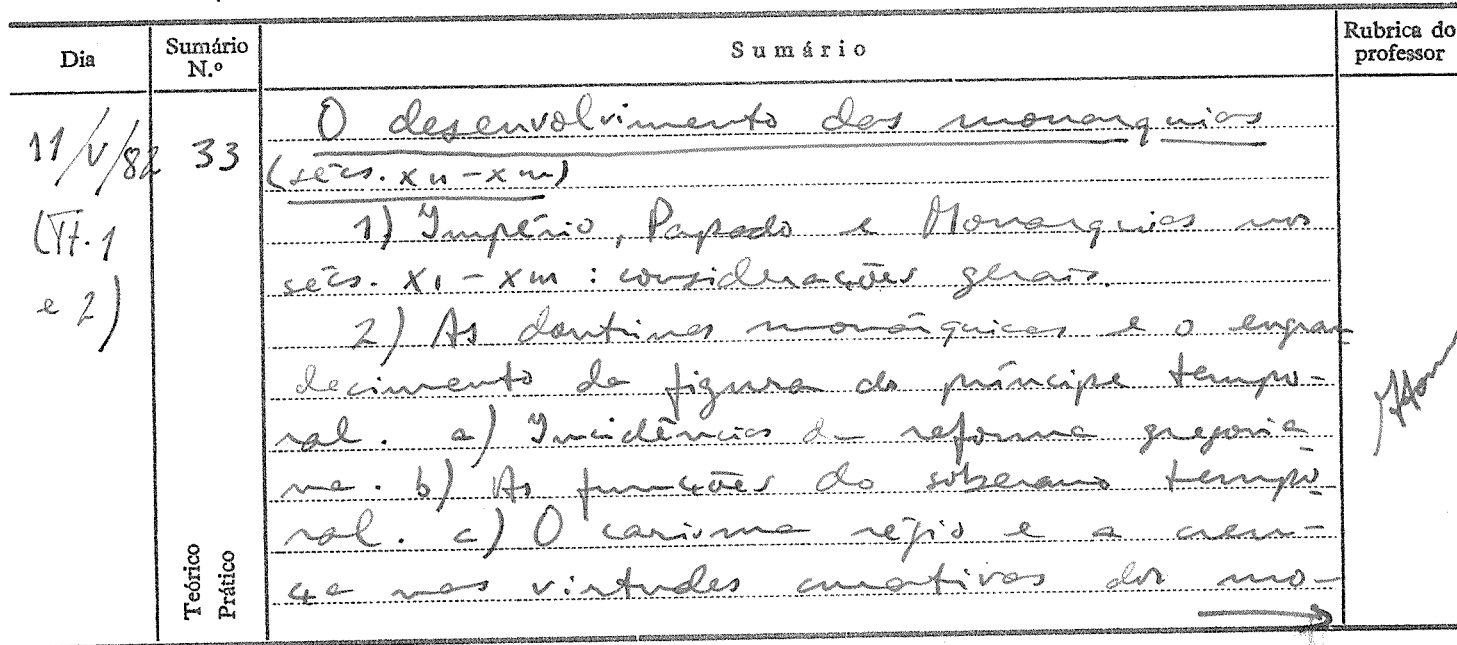 Dia
Sumário N.º
Sumário
Rubrica do professor
11/V/82
(Tt. 1
e 2)
33
O desenvolvimento das monarquias
(sécs. XII-XIII)
1) Império, Papado e Monarquias nos
sécs. XI-XIII: considerações gerais.
2) As doutrinas monárquicas e o engran
decimento da figura do príncipe tempo-
ral. a) Incidências da reforma gregoria
na. b) As funções do soberano tempo
ral. c) O carisma régio e a cren-
ça nas virtudes curativas dos mo-
Teórico
Prático